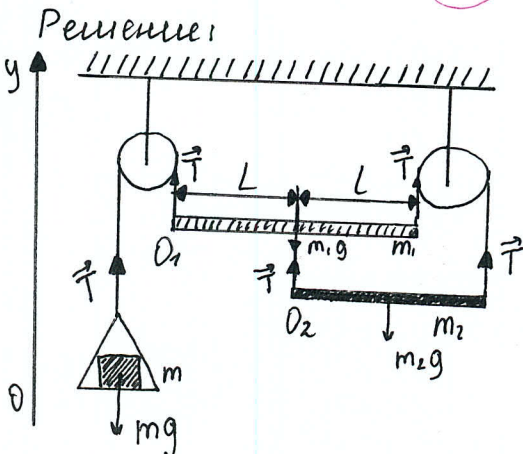 Решение:
y
T T
L L
O₁ m₁g m₁
T T T
O₂ m₂
m m₂g
0
mg